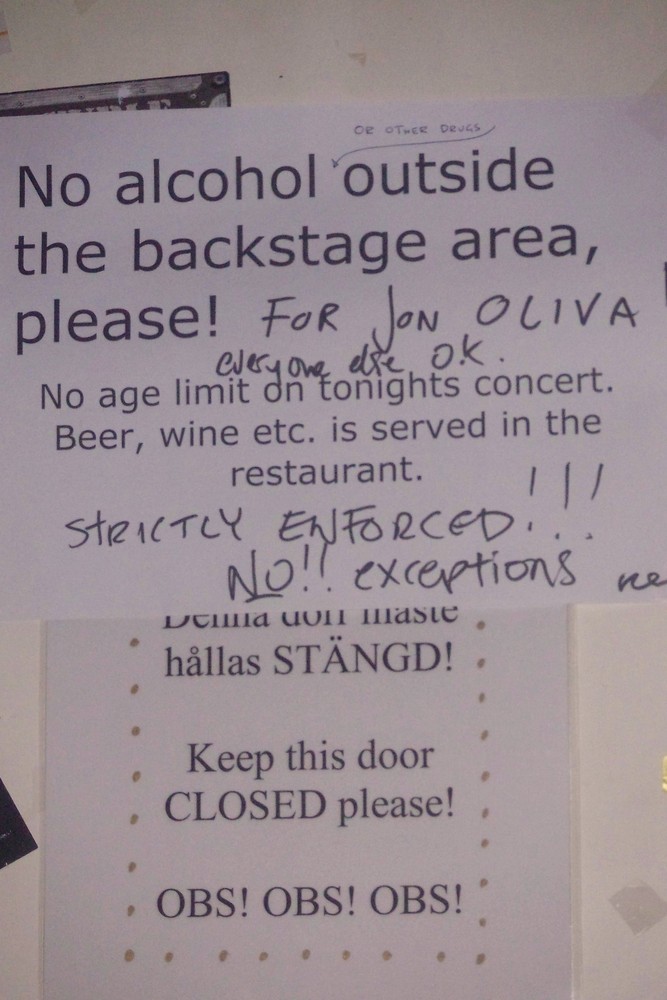 OR OTHER DRUGS
No alcohol outside
the backstage area,
please! FOR JON OLIVA
everyone else OK.
No age limit on tonights concert.
Beer, wine etc. is served in the
restaurant.
STRICTLY ENFORCED!!!
NO!! exceptions
Denna dörr måste
hållas STÄNGD!
Keep this door
CLOSED please!
OBS! OBS! OBS!